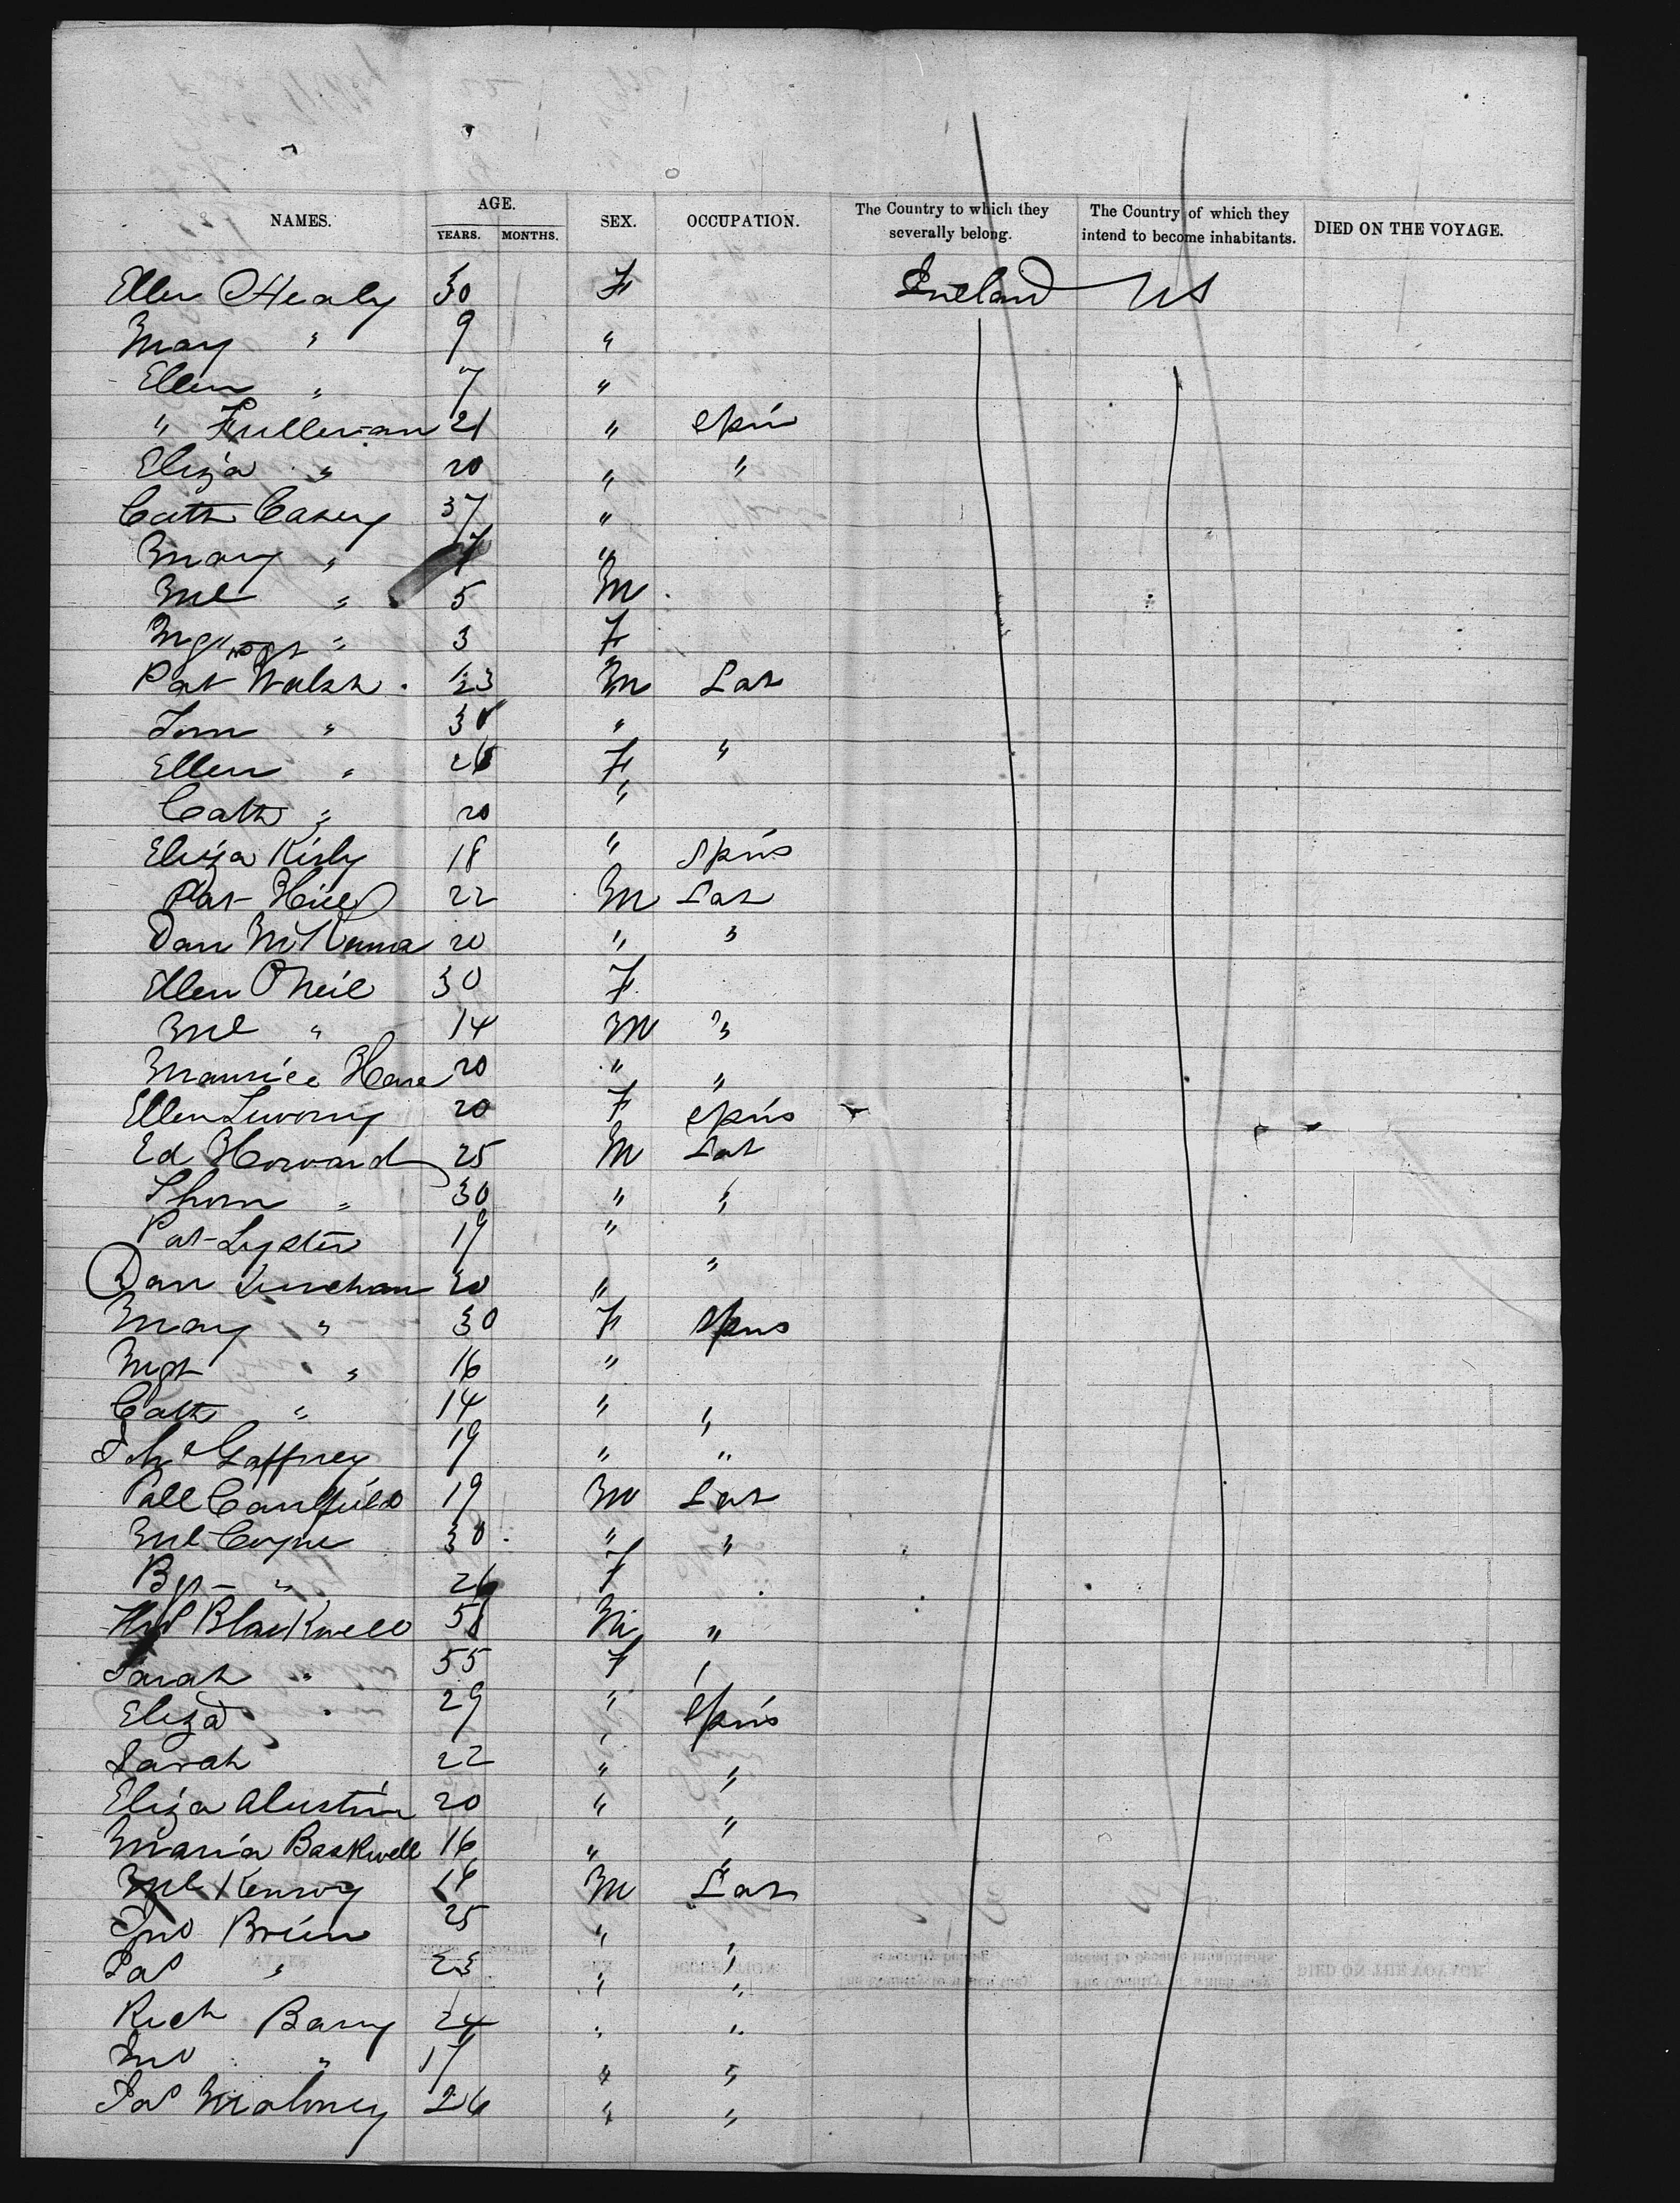 AGE.
NAMES. YEARS. MONTHS. SEX. OCCUPATION. The Country to which they severally belong. The Country of which they intend to become inhabitants. DIED ON THE VOYAGE.
Ellen Healy 30 F Ireland US
Mary " 9 "
Ellen " 7 "
" Fullivan 21 " Spin
Eliza " 20 " "
Cath Casey 37 "
Mary " 7 "
Ml " 5 M
Mgt " 3 F
Pat Walsh 23 M Lab
Tom " 30 "
Ellen " 26 F "
Cath " 20 "
Eliza Kirby 18 " Spins
Pat Hill 22 M Lab
Dan McKenna 20 " "
Ellen O'Neil 30 F
Ml " 14 M "
Maurice Hare 20 " "
Ellen 20 F Spins
Ed Howard 25 M Lab
Thom " 30 " "
Pat Lyster 19 "
Dan 20 " "
Mary " 30 F Spins
Mgt " 16 "
Cath " 14 " "
Gaffney 19 " "
Caulfield 19 M Lab
Ml Coyne 30 " "
Bgt " 26 F
Blackwell 58 M "
Sarah " 55 F "
Eliza " 29 " Spins
Sarah 22 " "
Eliza Austin 20 " "
Maria Baskwell 16 " "
Ml Kenroy 14 M Lab
Jno Brien 25 " "
Jas " 23 " "
Rich Barry 24 " "
Jno " 17 " "
Jas Maloney 26 " "